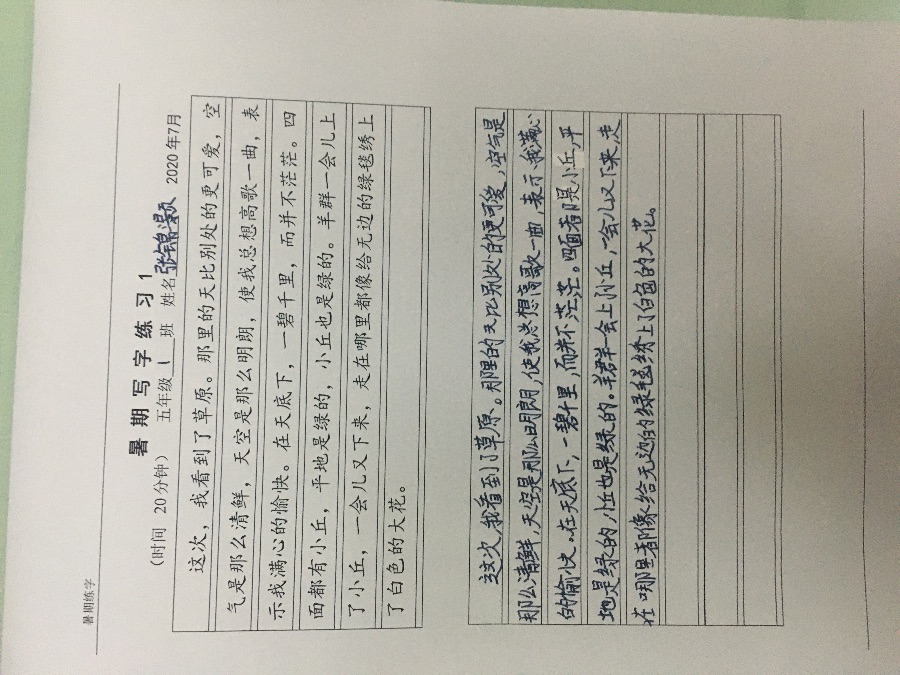 暑期练字
暑 期 写 字 练 习 1
（时间 20分钟） 五年级 1 班 姓名 张锦灏 2020年7月
这次，我看到了草原。那里的天比别处的更可爱，空
气是那么清鲜，天空是那么明朗，使我总想高歌一曲，表
示我满心的愉快。在天底下，一碧千里，而并不茫茫。四
面都有小丘，平地是绿的，小丘也是绿的。羊群一会儿上
了小丘，一会儿又下来，走在哪里都像给无边的绿毯绣上
了白色的大花。
这次，我看到了草原。那里的天比别处的便可爱，空气是
那么清鲜，天空是那么明朗，使我总想高歌一曲，表示我满心
的愉快。在天底下，一碧千里，而并不茫茫。四面都是小丘，平
地是绿的，小丘也是绿的。羊群一会上小丘，一会儿又下来，走
在哪里都像给无边的绿毯绣上了白色的大花。